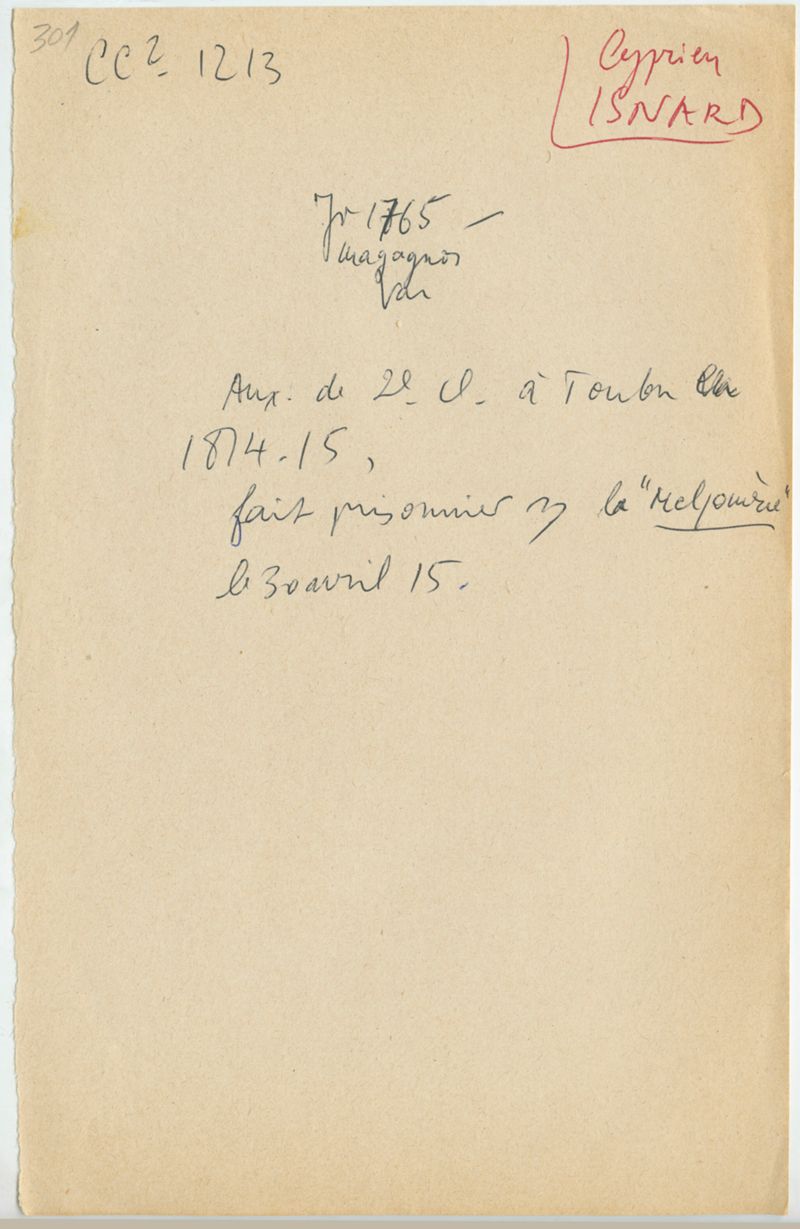 301
CC2. 1213
Cyprien
ISNARD
Jr 1765 —
Magagnos
Var
Aux. de 2e. Cl. à Toulon en
1814-15,
fait prisonnier la "Melpomène"
le 30 avril 15.